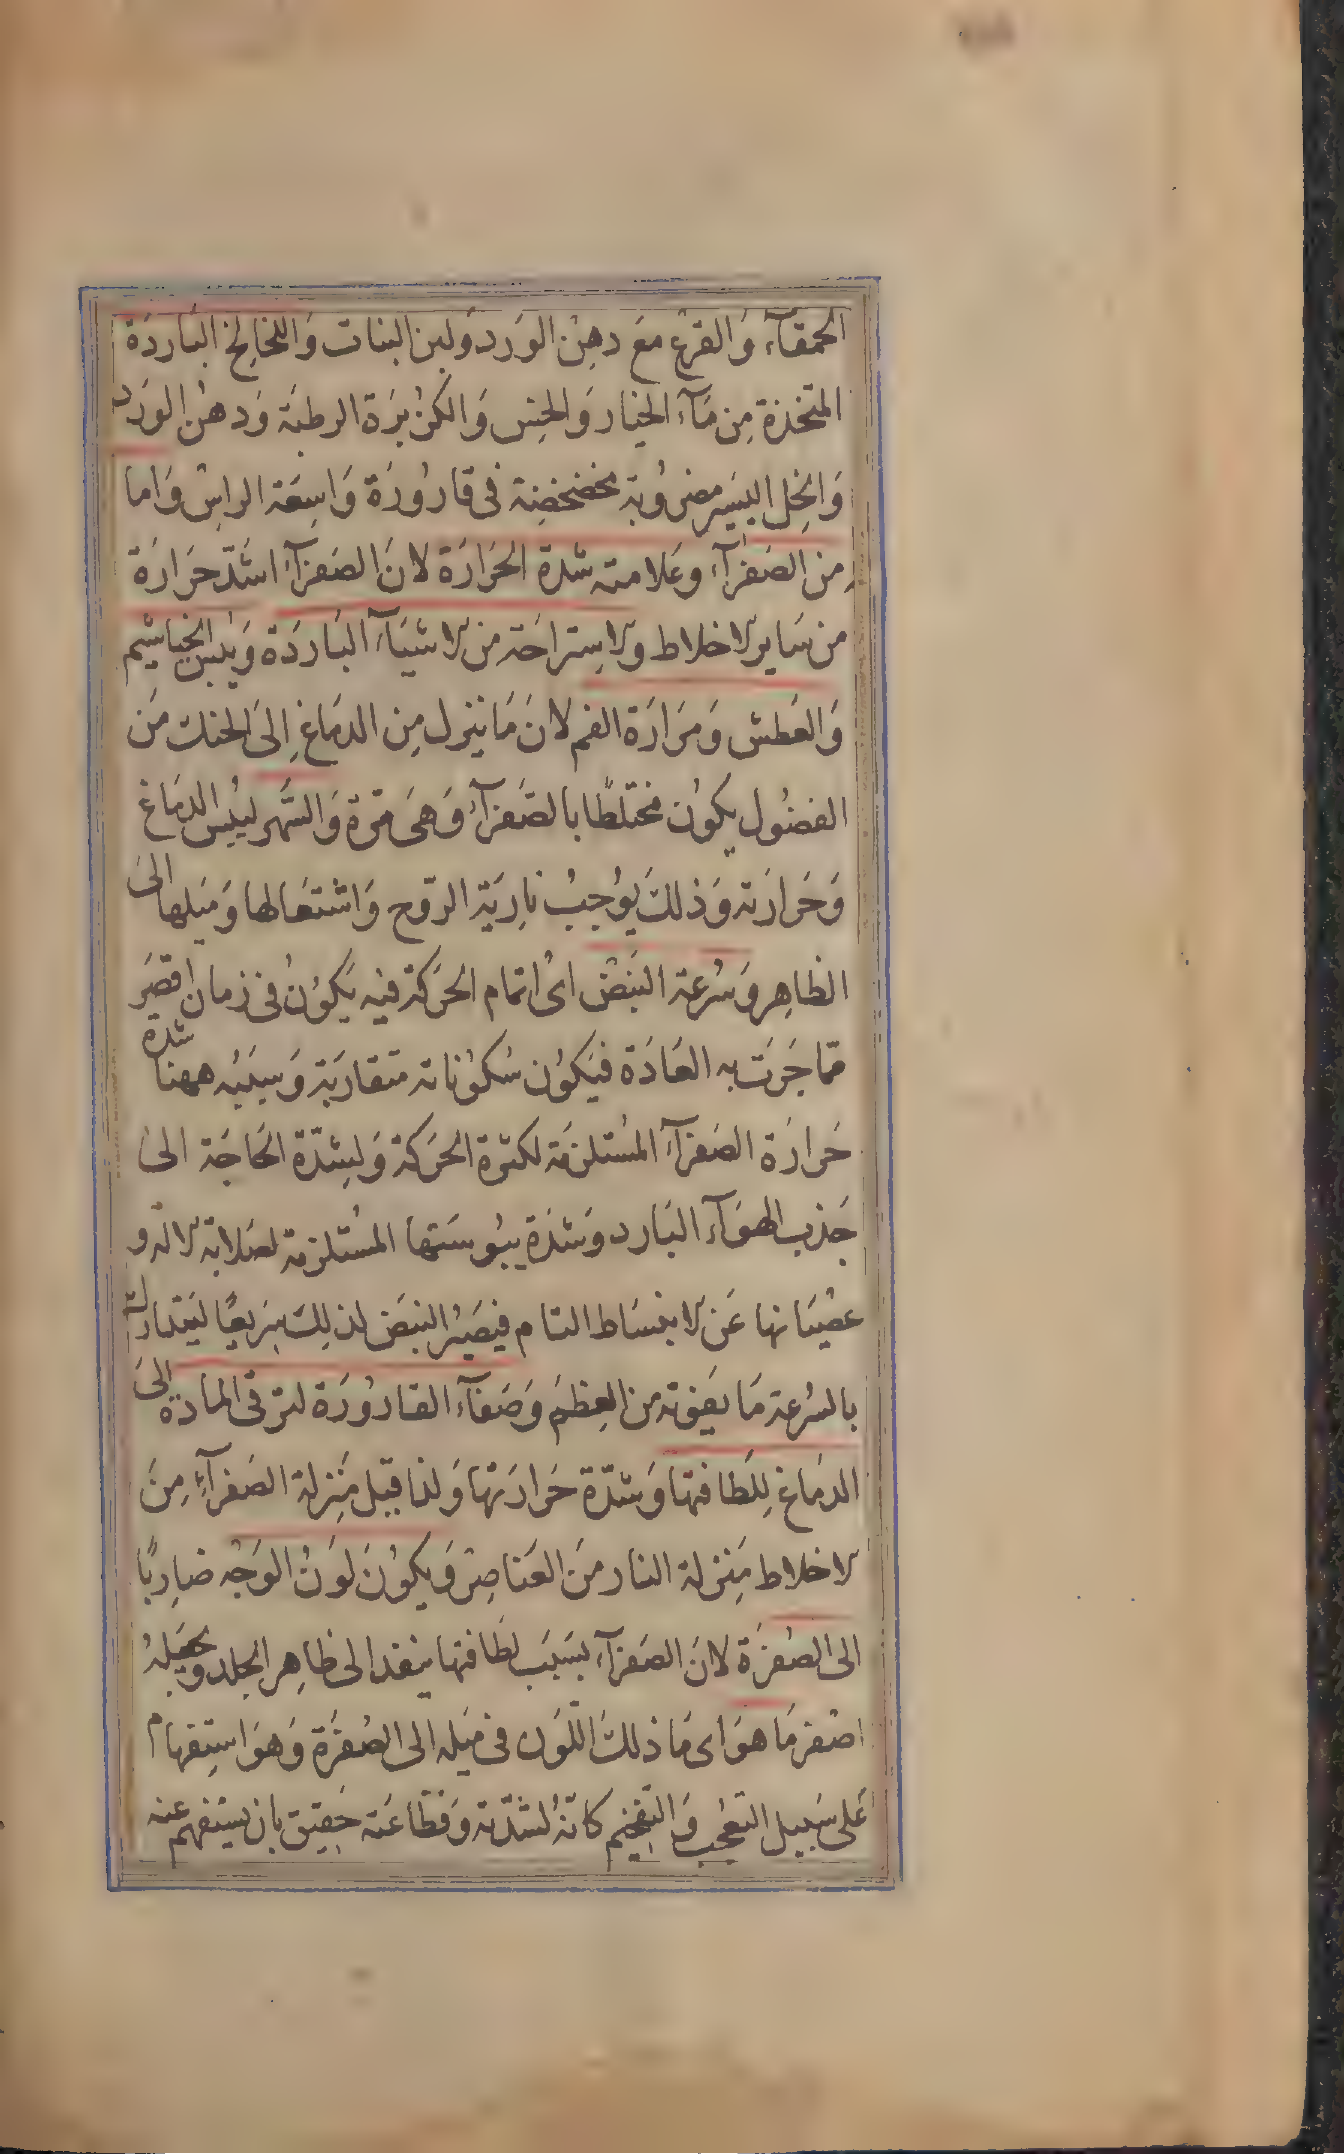 الحمقآء وَالقرع مَع دهن الوَرد وَلبن البنات وَاللخالخ البَاردَة
المتخذة مِن مَآء الخيار وَالخس وَالكزبرَة الرطبَة وَدهن الوَرد
وَالخل اليَسير مضروُبة مخضخضة فى قاروُرَة وَاسِعَة الراسِ وَاما
مِن الصَفرآء وعَلامته شدة الحَرارَة لانَ الصَفرَآء اشَدّ حَرارَة
من سَاير الاخلاط والاستراحَة من الاشيَآء البَاردَة وَيبس الخياشيم
وَالعَطش وَمرَارَة الفم لانَ مَا ينزل مِن الدمَاغ اِلىَ الحنك مَن
الفضُول يكوُن مختلطًا بالصَفرَآء وَهىَ مرّة وَالسَهر ليُبس الدمَاغ
وَحَرارَته وَذلكَ يوُجبُ نارِيَة الروّح وَاشتعَالها وَمَيلها الىَ
الظاهِر وَسُرعَة النَبض اىْ اتمام الحَركَة فيه يَكوُن فى زمان اقصَر
ممّا جَرَت به العَادَة فيَكوُن سُكوُناته متقاربَة وَسَبَبُه ههنا شدة
حَرارَة الصَفرَآء المسُتلزمَة لكثرة الحَركَة وَلِشدّة الحَاجَة الىٰ
جَذب الهوَآء البَارد وَشدَة يبُوسَتها المسُتلزمة لصَلابة الالة و
عصْيَانها عَن الانبسَاط التام فيصَيُر النبَض لذلِكَ سَريعًا ليَتدارك
بالسُرعة مَا يَفوته من العِظَم وَصَفآء القاروُرَة لترقى المادة الىَ
الدمَاغ لِلَطافتها وَشدّة حَرارَتها وَلذا قيل مَنزلة الصَفرآءِ مِنَ
الاخلاط مَنزلة النار منَ العَناصِر وَيكوُن لَوَنُ الوَجْه ضارِبًا
الى الصُفرَة لانَ الصَفرَآء بسَبَب لطَافتها ينفذ الى ظاهِر الجلد وَيجعَلهُ
اصْفر مَا هوَ اى مَا ذلكَ اللّوَن فى مَيله الى الصُفرَة وَهوَ استفهام
عَلى سَبيل التعجب وَالتفخيم كانّهُ لشدّته وَفظاعَته حَقيق بان يستفهم عنه